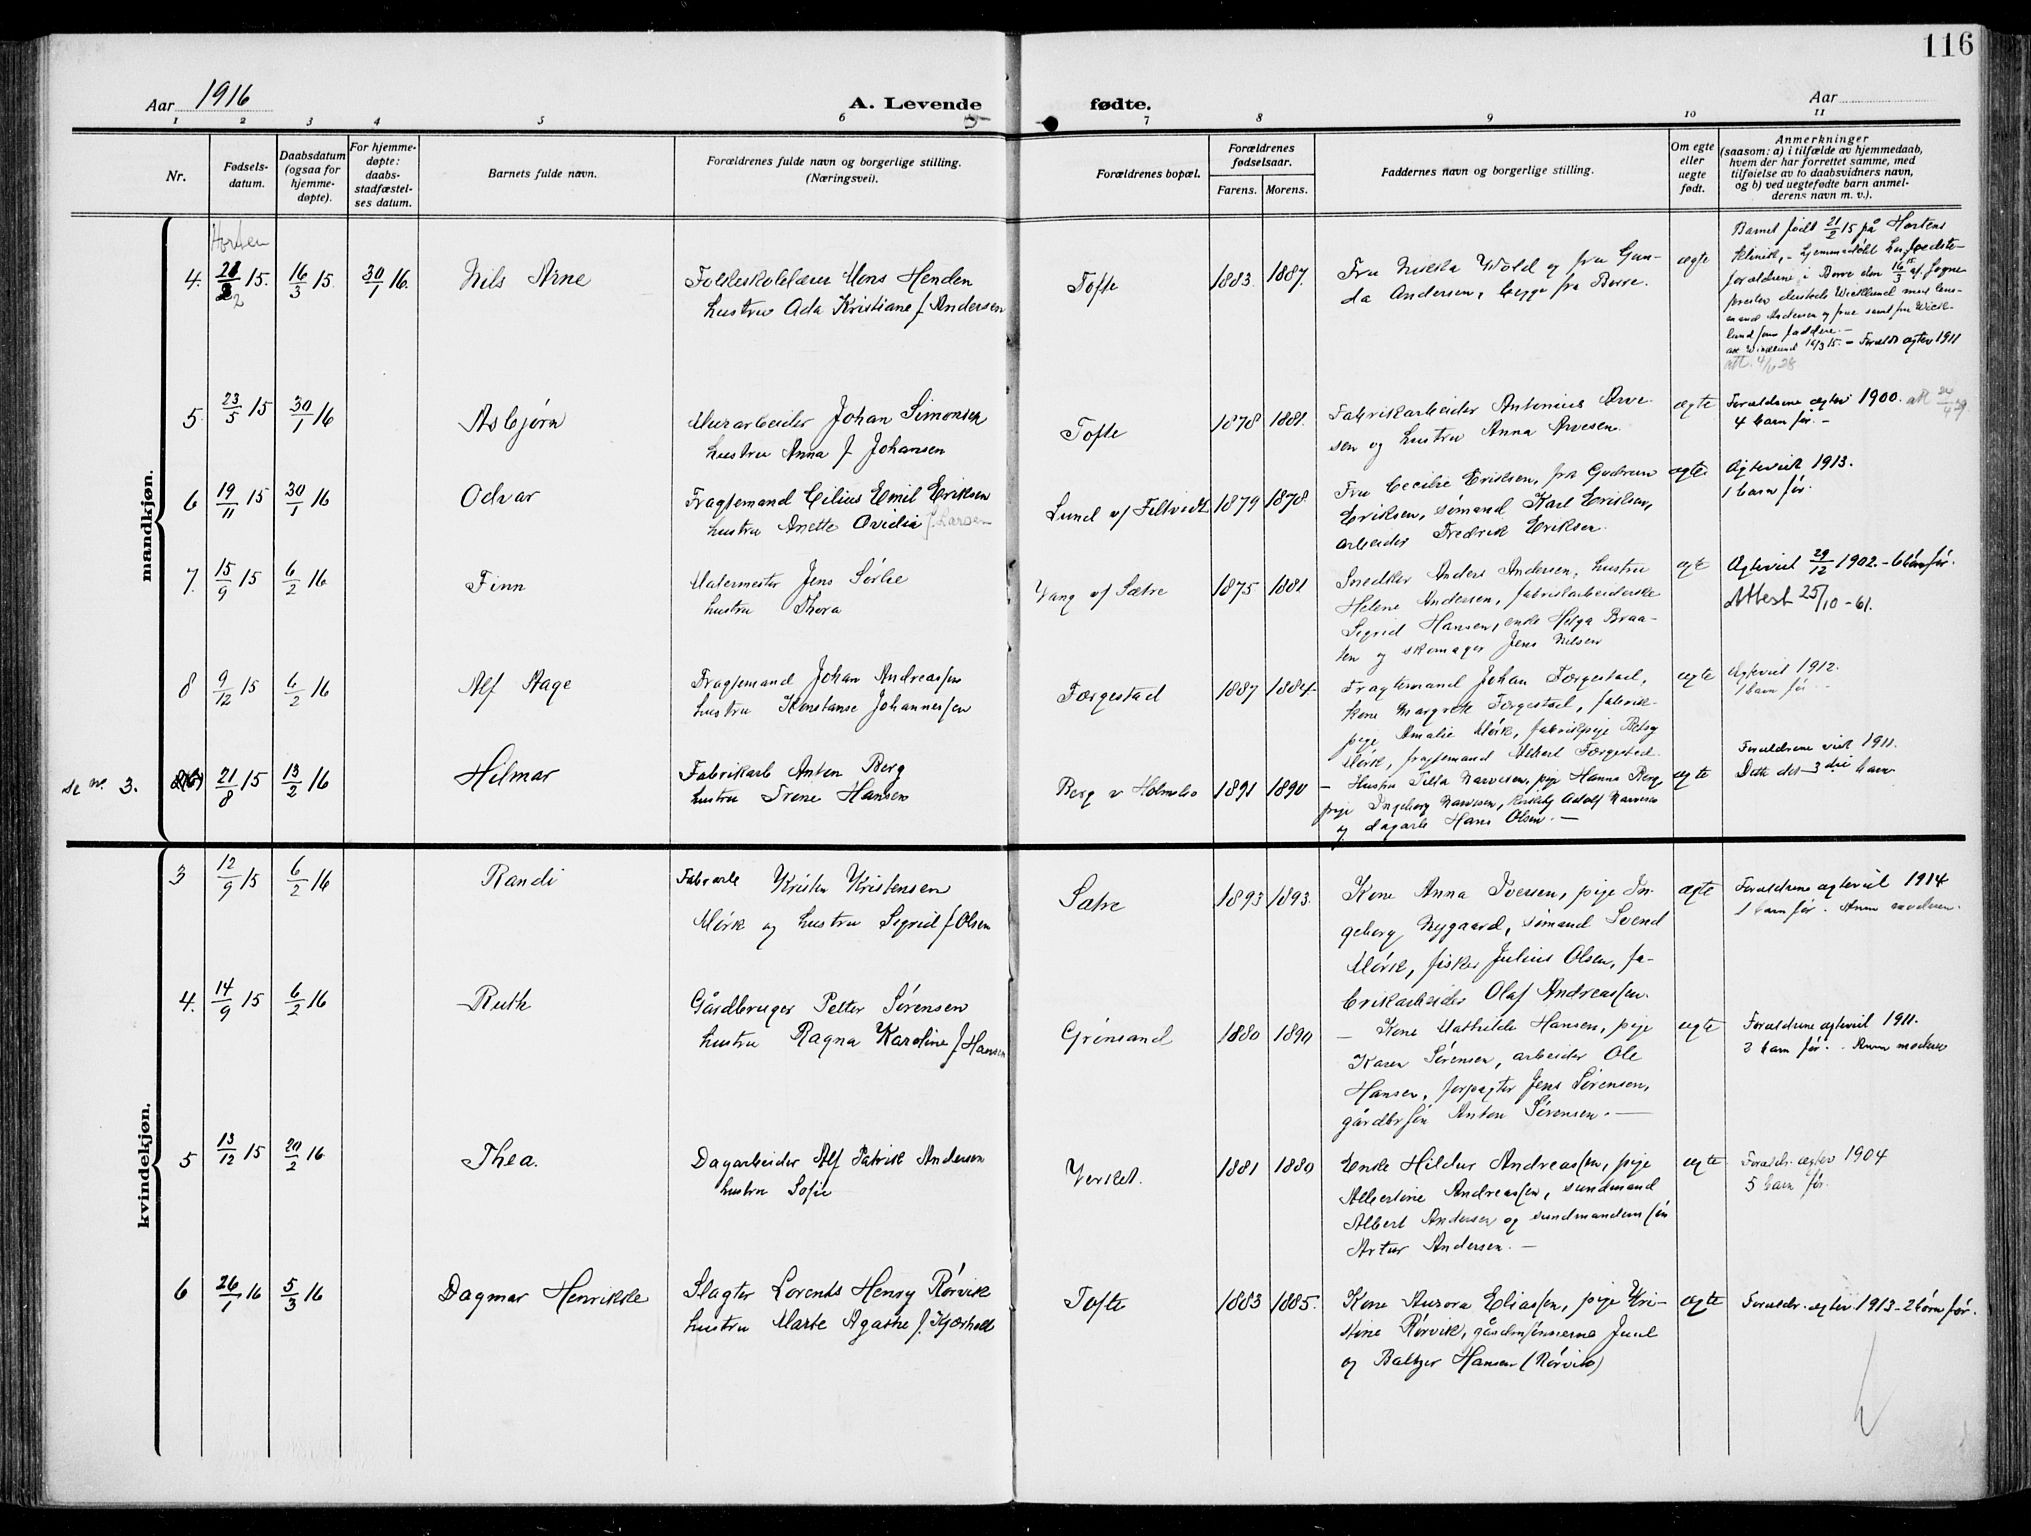 116
Aar 1916
A. Levende
fødte.
Aar
1 2 3 4 5 6 7 8 9 10 11
Nr.
Fødsels-
datum.
Daabsdatum
(ogsaa for
hjemme-
døpte).
For hjemme-
døpte:
daabs-
stadfæstel-
ses datum.
Barnets fulde navn.
Forældrenes fulde navn og borgerlige stilling.
(Næringsvei).
Forældrenes bopæl.
Forældrenes
fødselsaar.
Farens. Morens.
Faddernes navn og borgerlige stilling.
Om egte
eller
uegte
født.
Anmerkninger
(saasom: a) i tilfælde av hjemmedaab,
hvem der har forrettet samme, med
tilføielse av to daabsvidners navn,
og b) ved uegtefødte barn anmel-
derens navn m. v.).
mandkjøn.
Horten
4. 21/2 15. 16/3 15 30/1 16.
Nils Arne
Folkeskolelærer Mons Henden
hustru Ada Kristiane f Andersen
Tofte
1883. 1887.
Fru Wold og fru Gun-
da Andersen, begge fra Borre.
egte
Barnet født 21/2 15 på Hortens
klinik, - hjemmedøbt hos
forældrene i Borre den 16/3 15 af Sogne-
presten dersteds Wicklund med lens-
mand Andersen og frue samt fru Wick-
lund som faddere. -
16/3 15. - Foreldr egtev 1911
att. 4/6 28
5. 23/5 15 30/1 16
Asbjørn
Murarbeider Johan Simonsen
hustru Anna f Johansen
Tofte
1878 1881.
Fabrikarbeider Antonius Arve-
sen og hustru Anna Arvesen.
egte
Forældrene egtev 1900.
4 barn før. -
6 19/11 15 30/1 16
Odvar
Fragtemand Cilius Emil Eriksen
hustru Anette Ovidia f. Larsen
Lund v/ Filtvedt
1879 1878.
Fru Cecilie Eriksen, frk Gudrun
Eriksen, sømand Karl Eriksen,
arbeider Fredrik Eriksen.
egte
Egteviet 1913.
1 barn før.
7. 15/9 15 6/2 16
Finn
Malermester Jens Sørlie
hustru Thora
Vang v/ Sætre
1875 1881
Snedker Anders Andersen, hustru
Helene Andersen, fabrikarbeiderske
Sigrid Hansen, enke Helga Braa-
ten og skomager Jens Nilsen
egte
Egteviet 29/12 1902. - 6 børn før.
Attest 25/10 - 61.
8 9/12 15 6/2 16
Alf Aage
Fragtemand Johan Andreassen
hustru Konstanse Johannessen
Færgestad
1887 1884
Fragtemand Johan Færgestad,
kone Margrete Færgestad, fabrik-
pige Amalie Mørk, fabrikpige Betsy
Mørk, fragtemand Albert Færgestad.
egte
Egteviet 1912.
1 barn før. -
se nr. 3.
21/8 15 13/2 16
Hilmar
Fabrikarb Anton Berg
hustru Irene Hansen
Berg v Holmsbo
1891 1890
- Hustru Tilla Narvesen, pige Hanna Berg,
pige Ingeborg Narvesen, Adolf Narvesen
og dagarb Hans Olsen. -
egte
Forældrene viet 1911.
Dette det 3 die barn.
kvindekjøn.
3 12/9 15 6/2 16
Randi
Fabrarb Kristen Kristensen
Mørk og hustru Sigrid f Olsen
Sætre
1893 1893.
Kone Anna Iversen, pige In-
geborg Nygaard, sømand Svend
Mørk, fisker Julius Olsen, fa-
brikarbeider Olaf Andreassen.
egte
Forældrene egteviet 1914
1 barn før. Anm moderen.
4. 14/9 15 6/2 16
Ruth
Gårdbruger Petter Sørensen
hustru Ragna Karoline f Hansen
Grønsand
1880 1890
- Kone Mathilde Hansen, pige
Karen Sørensen, arbeider Ole
Hansen, forpagter Jens Sørensen,
gårdbrsøn Anton Sørensen. -
egte
Forældrene egteviet 1911.
3 barn før. - Anm moderen
5 13/12 15 20/2 16
Thea.
Dagarbeider Alf Patrik Andersen
hustru Sofie
Verket.
1881 1880
Enke Hildur Andreassen, pige
Albertine Andreassen, sundmand
Albert Andersen og sundmandssøn
Artur Andersen. -
egte
Forældr. egtev 1904
5 barn før.
6 26/1 16 5/3 16
Dagmar Henrikke
Slagter Lorents Henry Rørvik
hustru Marte Agathe f. Kjærholt
Tofte
1883 1885.
Kone Aurora Eliassen, pige Kri-
stine Rørvik, gårdmsønnerne Juul
og Baltzer Hansen (Rørvik)
egte
Forældr. egtev 1913 - 2 børn før.